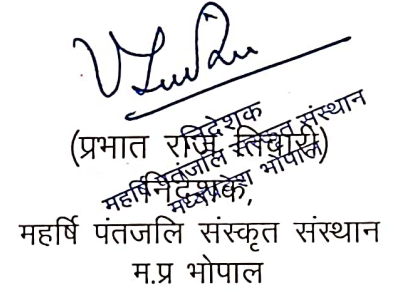 (प्रभात राज तिवारी)
निदेशक,
महर्षि पंतजलि संस्कृत संस्थान
म.प्र भोपाल
निदेशक
महर्षि पतंजलि संस्कृत संस्थान
मध्यप्रदेश भोपाल